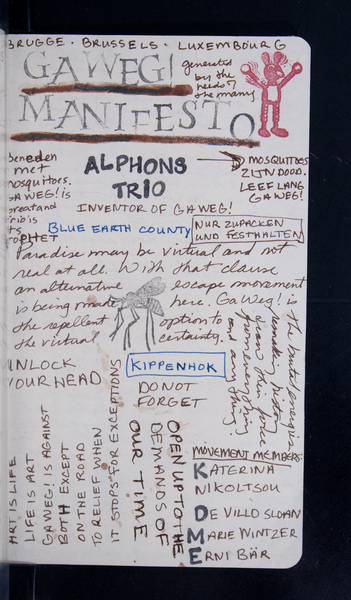 BRUGGE · BRUSSELS · LUXEMBOURG
GAWEG!
MANIFESTO
generated
by the
needs of
the many
Beneden
met
mosquitoes.
GAWEG! is
great and
Trio is
its
PROPHET
ALPHONS
TRIO
MOSQUITOES
ZIJN DOOD.
LEEF LANG
GAWEG!
INVENTOR OF GAWEG!
BLUE EARTH COUNTY
NUR ZUPACKEN
UND FESTHALTEN
Paradise may be virtual and not
real at all. With that clause
an alternative escape movement
is being made here. GaWeg! is
the repellent option to
the virtual certainty.
from everything
and anything!
KIPPENHOK
UNLOCK
YOUR HEAD
DO NOT
FORGET
ART IS LIFE
LIFE IS ART
GAWEG! IS AGAINST
BOTH EXCEPT
ON THE ROAD
TO RELIEF WHEN
IT STOPS FOR EXCEPTIONS
OPEN UP TO THE
DEMANDS OF
OUR TIME.
MOVEMENT MEMBERS:
KATERINA
NIKOLTSOU
DE VILLO SLOAN
MARIE WINTZER
ERNI BÄR
K
D
M
E